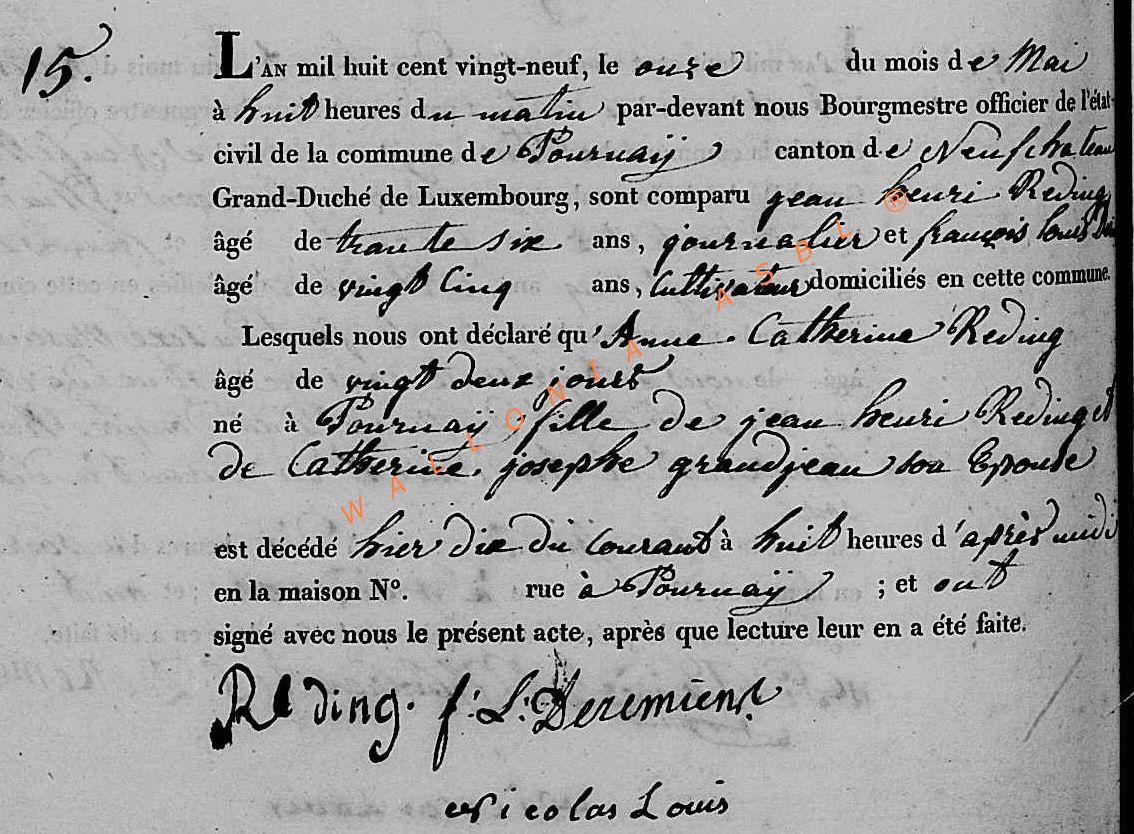 15.
L'AN mil huit cent vingt-neuf, le onze du mois de Mai
à huit heures du matin par-devant nous Bourgmestre officier de l'état-
civil de la commune de Tournaÿ canton de Neufchateau
Grand-Duché de Luxembourg, sont comparu jean henri Reding
âgé de trante six ans, journalier et françois louis
âgé de vingt Cinq ans, Cultivateur domiciliés en cette commune.
Lesquels nous ont déclaré qu'Anne. Catherine Reding
âgé de vingt deux jours
né à Tournaÿ fille de jean henri Reding et
de Catherine. josephe grandjean son Epouse
est décédé hier dix du Courant à huit heures d'après midi
en la maison N°. rue à Tournaÿ ; et ont
signé avec nous le présent acte, après que lecture leur en a été faite.
Reding. f: L: Deremiens
Nicolas Louis
WALLONIA ASBL ®